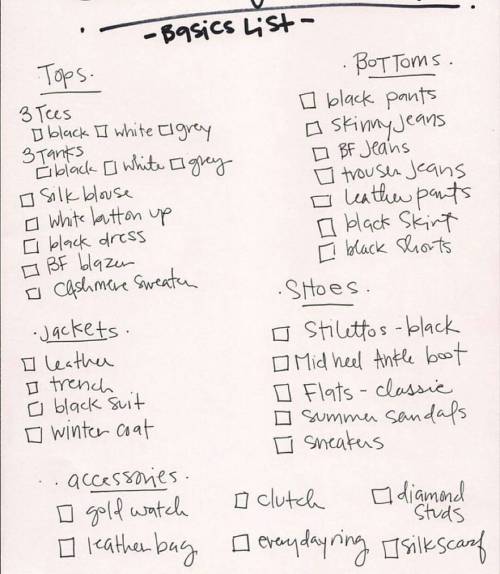 -Basics List-
Tops.
3 Tees
black white grey
3 Tanks
black white grey
Silk blouse
white button up
black dress
BF blazer
Cashmere Sweater
. BOTTOMS .
black pants
skinny jeans
BF Jeans
trouser jeans
leather pants
black skirt
black shorts
. Jackets .
leather
trench
black suit
winter coat
. SHoes .
Stilettos - black
Mid heel Ankle boot
Flats - classic
summer sandals
sneakers
. accessories .
gold watch
clutch
diamond
studs
leather bag
everyday ring
silk scarf